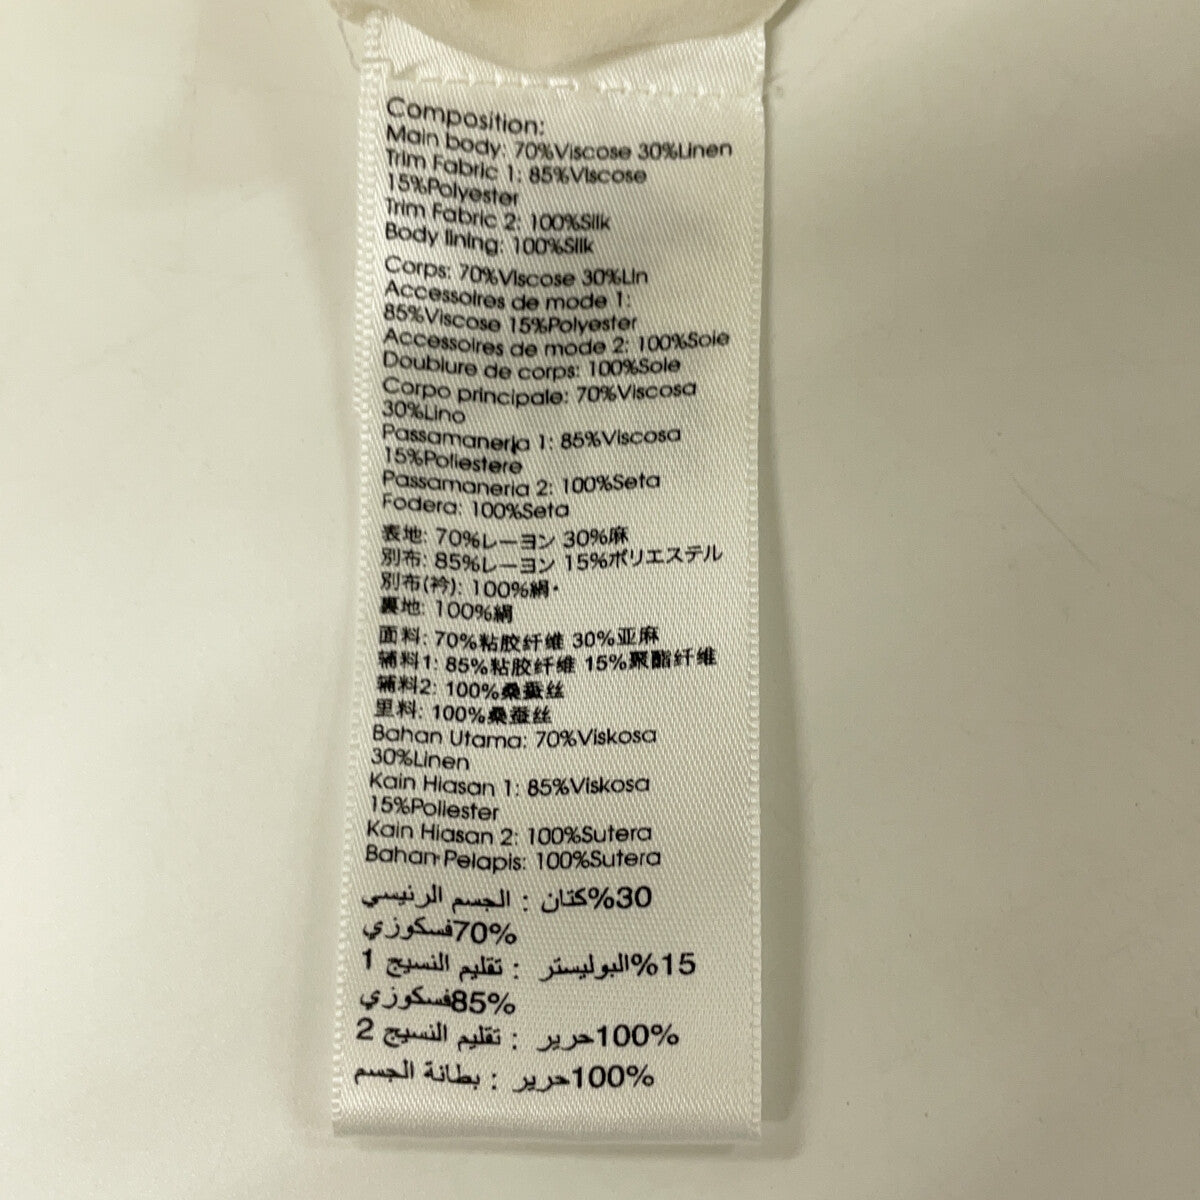 Composition:
Main body: 70%Viscose 30%Linen
Trim Fabric 1: 85%Viscose
15%Polyester
Trim Fabric 2: 100%Silk
Body lining: 100%Silk
Corps: 70%Viscose 30%Lin
Accessoires de mode 1:
85%Viscose 15%Polyester
Accessoires de mode 2: 100%Soie
Doublure de corps: 100%Soie
Corpo principale: 70%Viscosa
30%Lino
Passamaneria 1: 85%Viscosa
15%Poliestere
Passamaneria 2: 100%Seta
Fodera: 100%Seta
表地: 70%レーヨン 30%麻
別布: 85%レーヨン 15%ポリエステル
別布(衿): 100%絹·
裏地: 100%絹
面料: 70%粘胶纤维 30%亚麻
辅料1: 85%粘胶纤维 15%聚酯纤维
辅料2: 100%桑蚕丝
里料: 100%桑蚕丝
Bahan Utama: 70%Viskosa
30%Linen
Kain Hiasan 1: 85%Viskosa
15%Poliester
Kain Hiasan 2: 100%Sutera
Bahan Pelapis: 100%Sutera
30%كتان : الجسم الرئيسي
70%فسكوزي
15%البوليستر : تقليم النسيج 1
85%فسكوزي
100%حرير : تقليم النسيج 2
100%حرير : بطانة الجسم